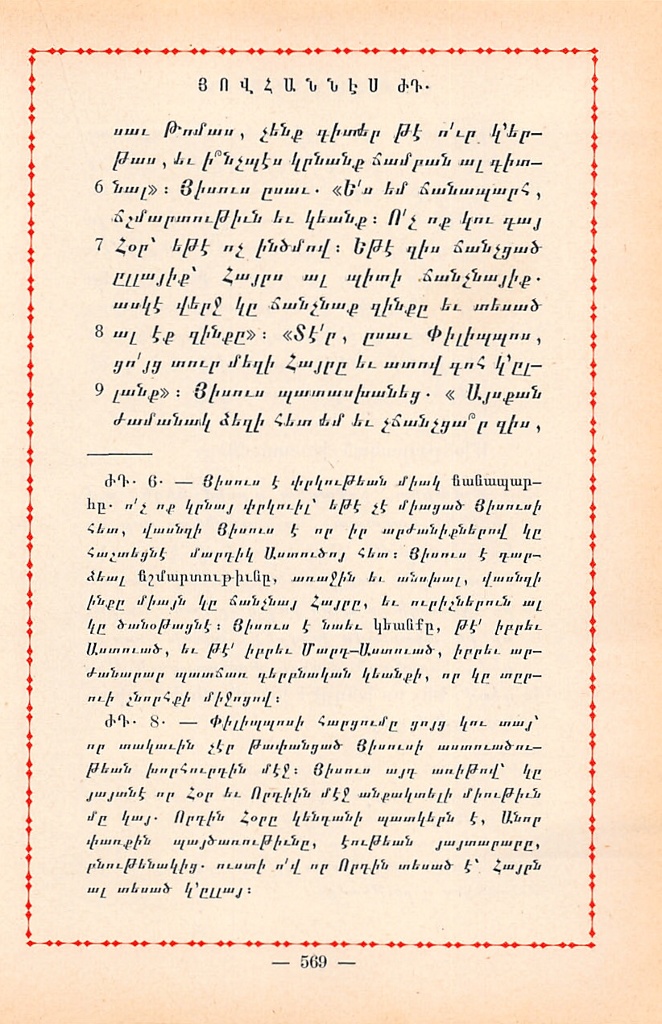 ՅՈՎՀԱՆՆԷՍ ԺԴ.
սաւ Թոմաս, չենք գիտեր թէ ո՛ւր կ՚եր–
թաս, եւ ի՞նչպէս կրնանք ճամբան ալ գիտ–
6 նալ»։ Յիսուս ըսաւ. «Ե՛ս եմ ճանապարհ,
ճշմարտութիւն եւ կեանք։ Ո՛չ ոք կու գայ
7 Հօր՝ եթէ ոչ ինծմով։ Եթէ զիս ճանչցած
ըլլայիք՝ Հայրս ալ պիտի ճանչնայիք.
ասկէ վերջ կը ճանչնաք զինքը եւ տեսած
8 ալ էք զինքը»։ «Տէ՛ր, ըսաւ Փիլիպպոս,
ցո՛յց տուր մեզի Հայրը եւ ատով գոհ կ՚ըլ–
9 լանք»։ Յիսուս պատասխանեց. « Այսքան
ժամանակ ձեզի հետ եմ եւ չճանչցա՞ր զիս,
ԺԴ. 6. — Յիսուս է փրկութեան միակ ճանապար–
հը. ո՛չ ոք կրնայ փրկուիլ՝ եթէ չէ միացած Յիսուսի
հետ, վասնզի Յիսուս է որ իր արժանիքներով կը
հաշտեցնէ մարդիկ Աստուծոյ հետ։ Յիսուս է դար–
ձեալ ճշմարտութիւնը, առաջին եւ անսխալ, վասնզի
ինքը միայն կը ճանչնայ Հայրը, եւ ուրիշներուն ալ
կը ծանօթացնէ։ Յիսուս է նաեւ կեանքը, թէ՛ իբրեւ
Աստուած, եւ թէ՛ իբրեւ Մարդ–Աստուած, իբրեւ ար–
ժանաբար պատճառ գերբնական կեանքի, որ կը տըր–
ուի շնորհքի միջոցով։
ԺԴ. 8. — Փիլիպպոսի հարցումը ցոյց կու տայ՝
որ տակաւին չէր թափանցած Յիսուսի աստուածու–
թեան խորհուրդին մէջ։ Յիսուս այդ առիթով՝ կը
յայտնէ որ Հօր եւ Որդիին մէջ անքակտելի միութիւն
մը կայ. Որդին Հօրը կենդանի պատկերն է, Անոր
փառքին պայծառութիւնը, էութեան յայտարարը,
բնութենակից. ուստի ո՛վ որ Որդին տեսած է՝ Հայրն
ալ տեսած կ՚ըլլայ։
— 569 —